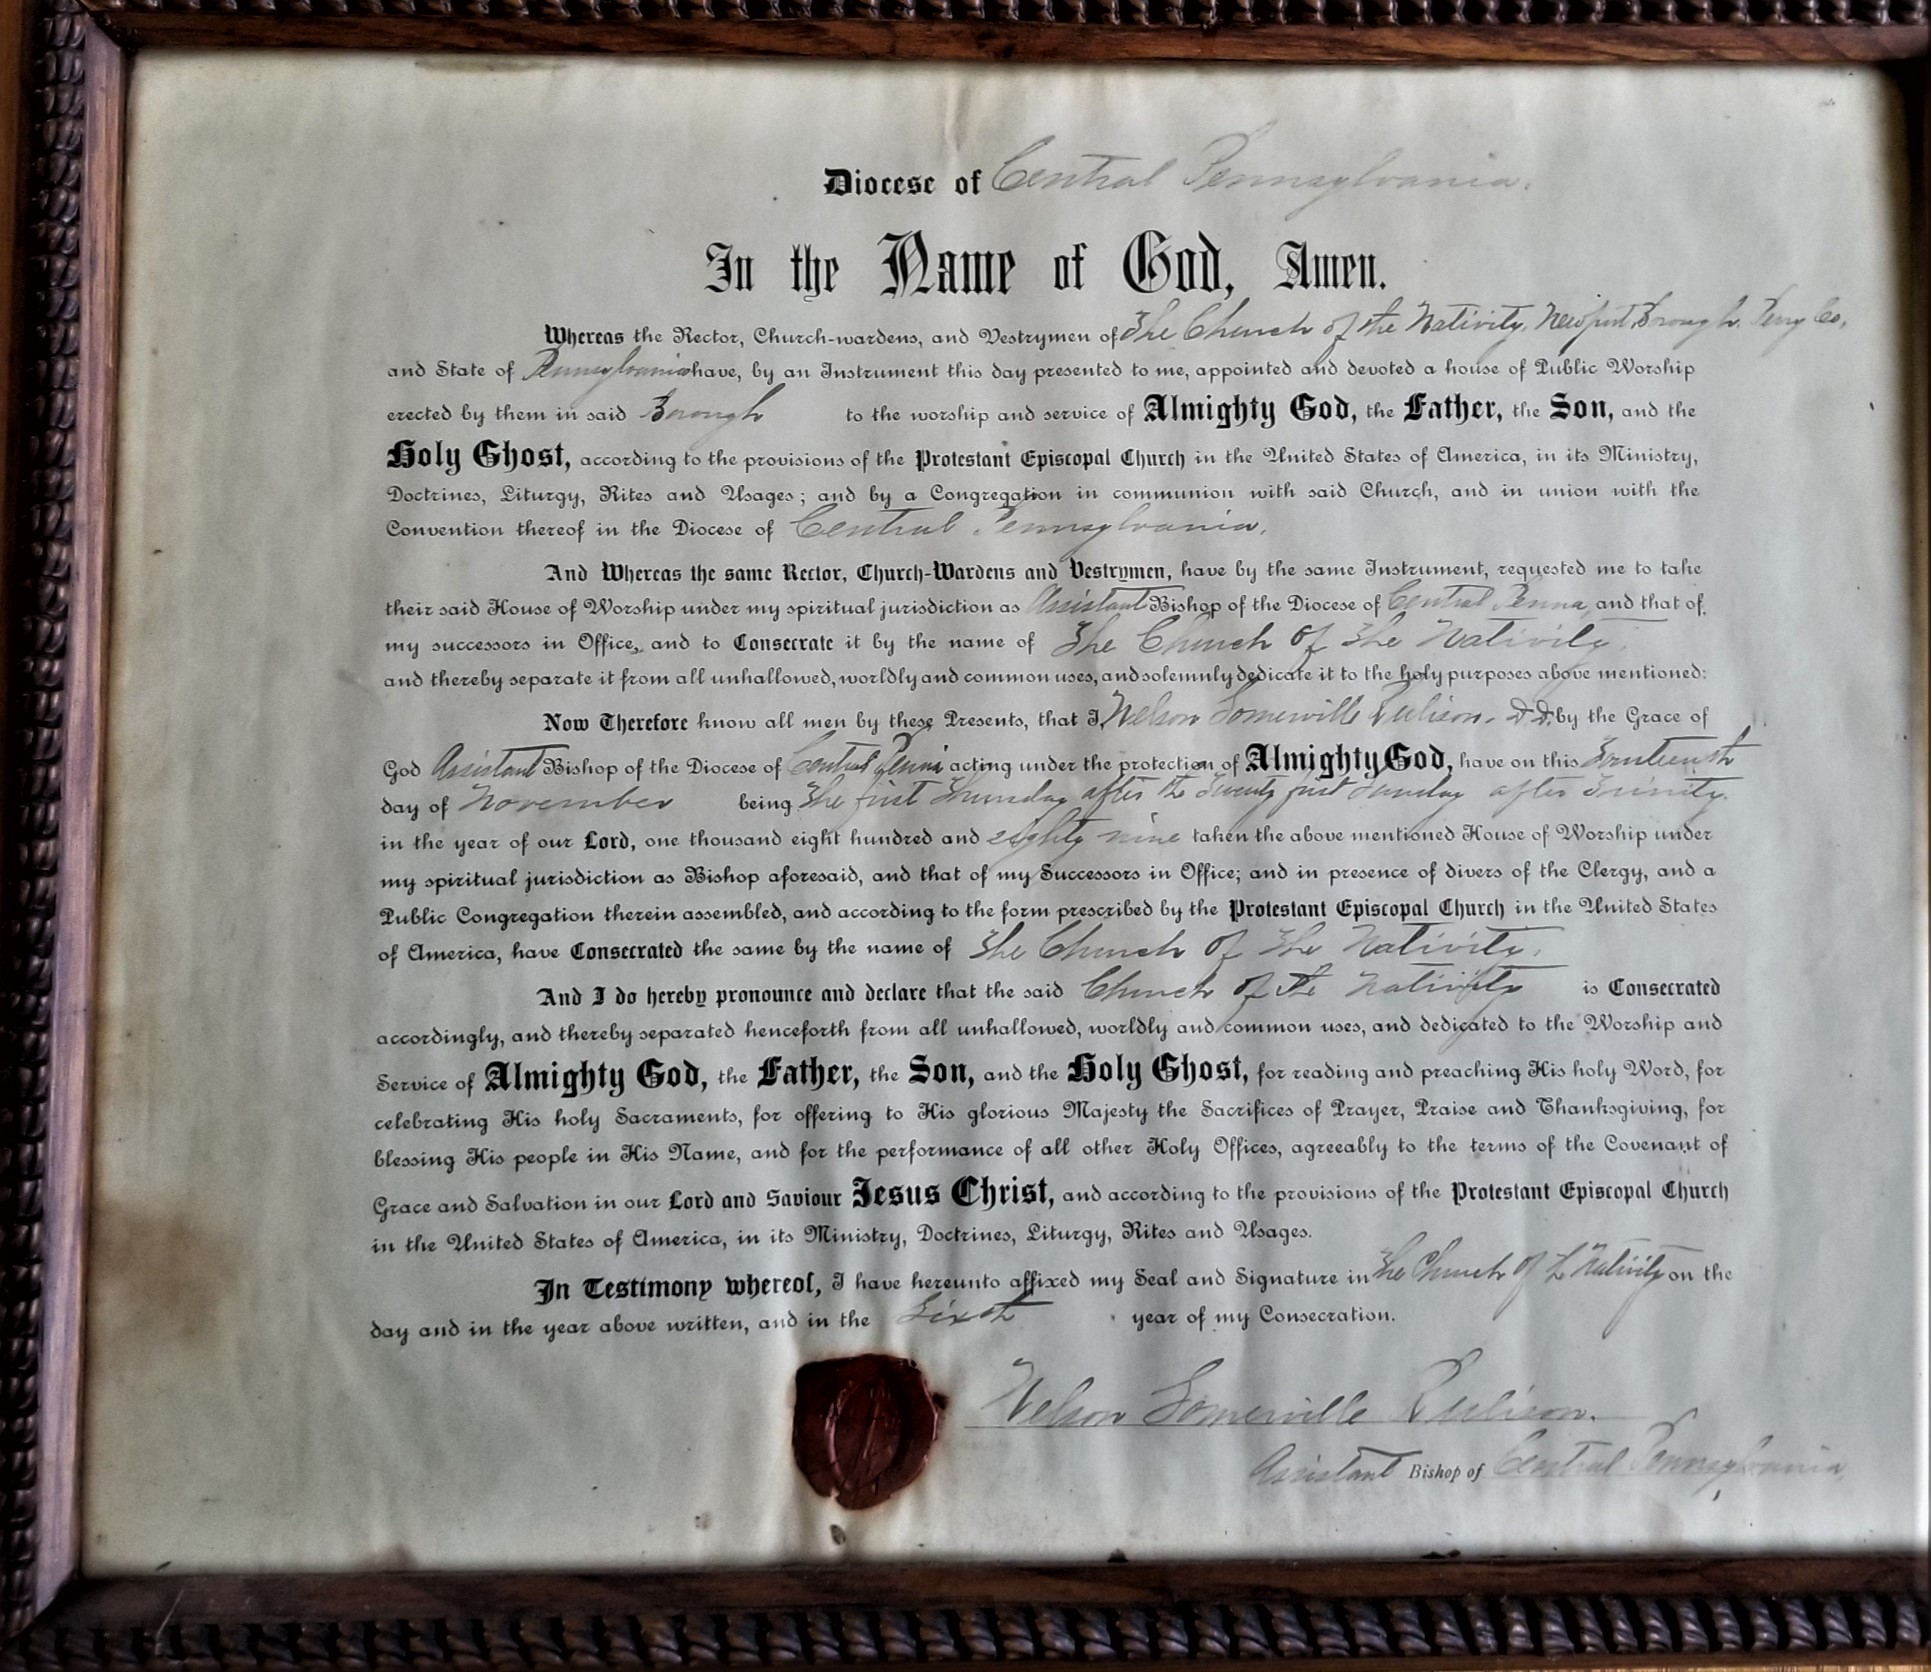 Diocese of Central Pennsylvania.
In the Name of God, Amen.
Whereas the Rector, Church-wardens, and Vestrymen of The Church of the Nativity, Newport Borough, Perry Co,
and State of Pennsylvania have, by an Instrument this day presented to me, appointed and devoted a house of Public Worship
erected by them in said Borough to the worship and service of Almighty God, the Father, the Son, and the
Holy Ghost, according to the provisions of the Protestant Episcopal Church in the United States of America, in its Ministry,
Doctrines, Liturgy, Rites and Usages; and by a Congregation in communion with said Church, and in union with the
Convention thereof in the Diocese of Central Pennsylvania,
And Whereas the same Rector, Church-Wardens and Vestrymen, have by the same Instrument, requested me to take
their said House of Worship under my spiritual jurisdiction as Assistant Bishop of the Diocese of Central Penna, and that of
my successors in Office, and to Consecrate it by the name of The Church of The Nativity,
and thereby separate it from all unhallowed, worldly and common uses, and solemnly dedicate it to the holy purposes above mentioned:
Now Therefore know all men by these Presents, that I, Nelson Somerville Rulison, D.D. by the Grace of
God Assistant Bishop of the Diocese of Central Penna acting under the protection of Almighty God, have on this Fourteenth
day of November being The first Thursday after the Twenty first Sunday after Trinity.
in the year of our Lord, one thousand eight hundred and eighty nine taken the above mentioned House of Worship under
my spiritual jurisdiction as Bishop aforesaid, and that of my Successors in Office; and in presence of divers of the Clergy, and a
Public Congregation therein assembled, and according to the form prescribed by the Protestant Episcopal Church in the United States
of America, have Consecrated the same by the name of The Church of The Nativity.
And I do hereby pronounce and declare that the said Church of the Nativity is Consecrated
accordingly, and thereby separated henceforth from all unhallowed, worldly and common uses, and dedicated to the Worship and
Service of Almighty God, the Father, the Son, and the Holy Ghost, for reading and preaching His holy Word, for
celebrating His holy Sacraments, for offering to His glorious Majesty the Sacrifices of Prayer, Praise and Thanksgiving, for
blessing His people in His Name, and for the performance of all other Holy Offices, agreeably to the terms of the Covenant of
Grace and Salvation in our Lord and Saviour Jesus Christ, and according to the provisions of the Protestant Episcopal Church
in the United States of America, in its Ministry, Doctrines, Liturgy, Rites and Usages.
In Testimony whereof, I have hereunto affixed my Seal and Signature in The Church of the Nativity on the
day and in the year above written, and in the Sixth year of my Consecration.
Nelson Somerville Rulison.
Assistant Bishop of Central Pennsylvania,